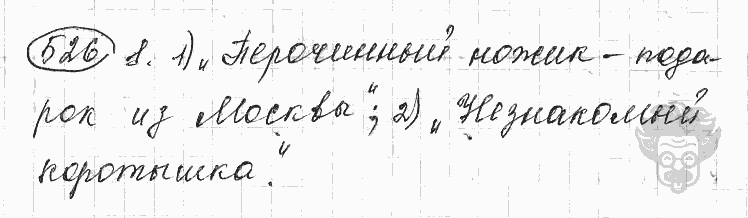 526 1. 1) „Перочинный ножик – пода-
рок из Москвы“; 2) „Незнакомый
коротышка.“